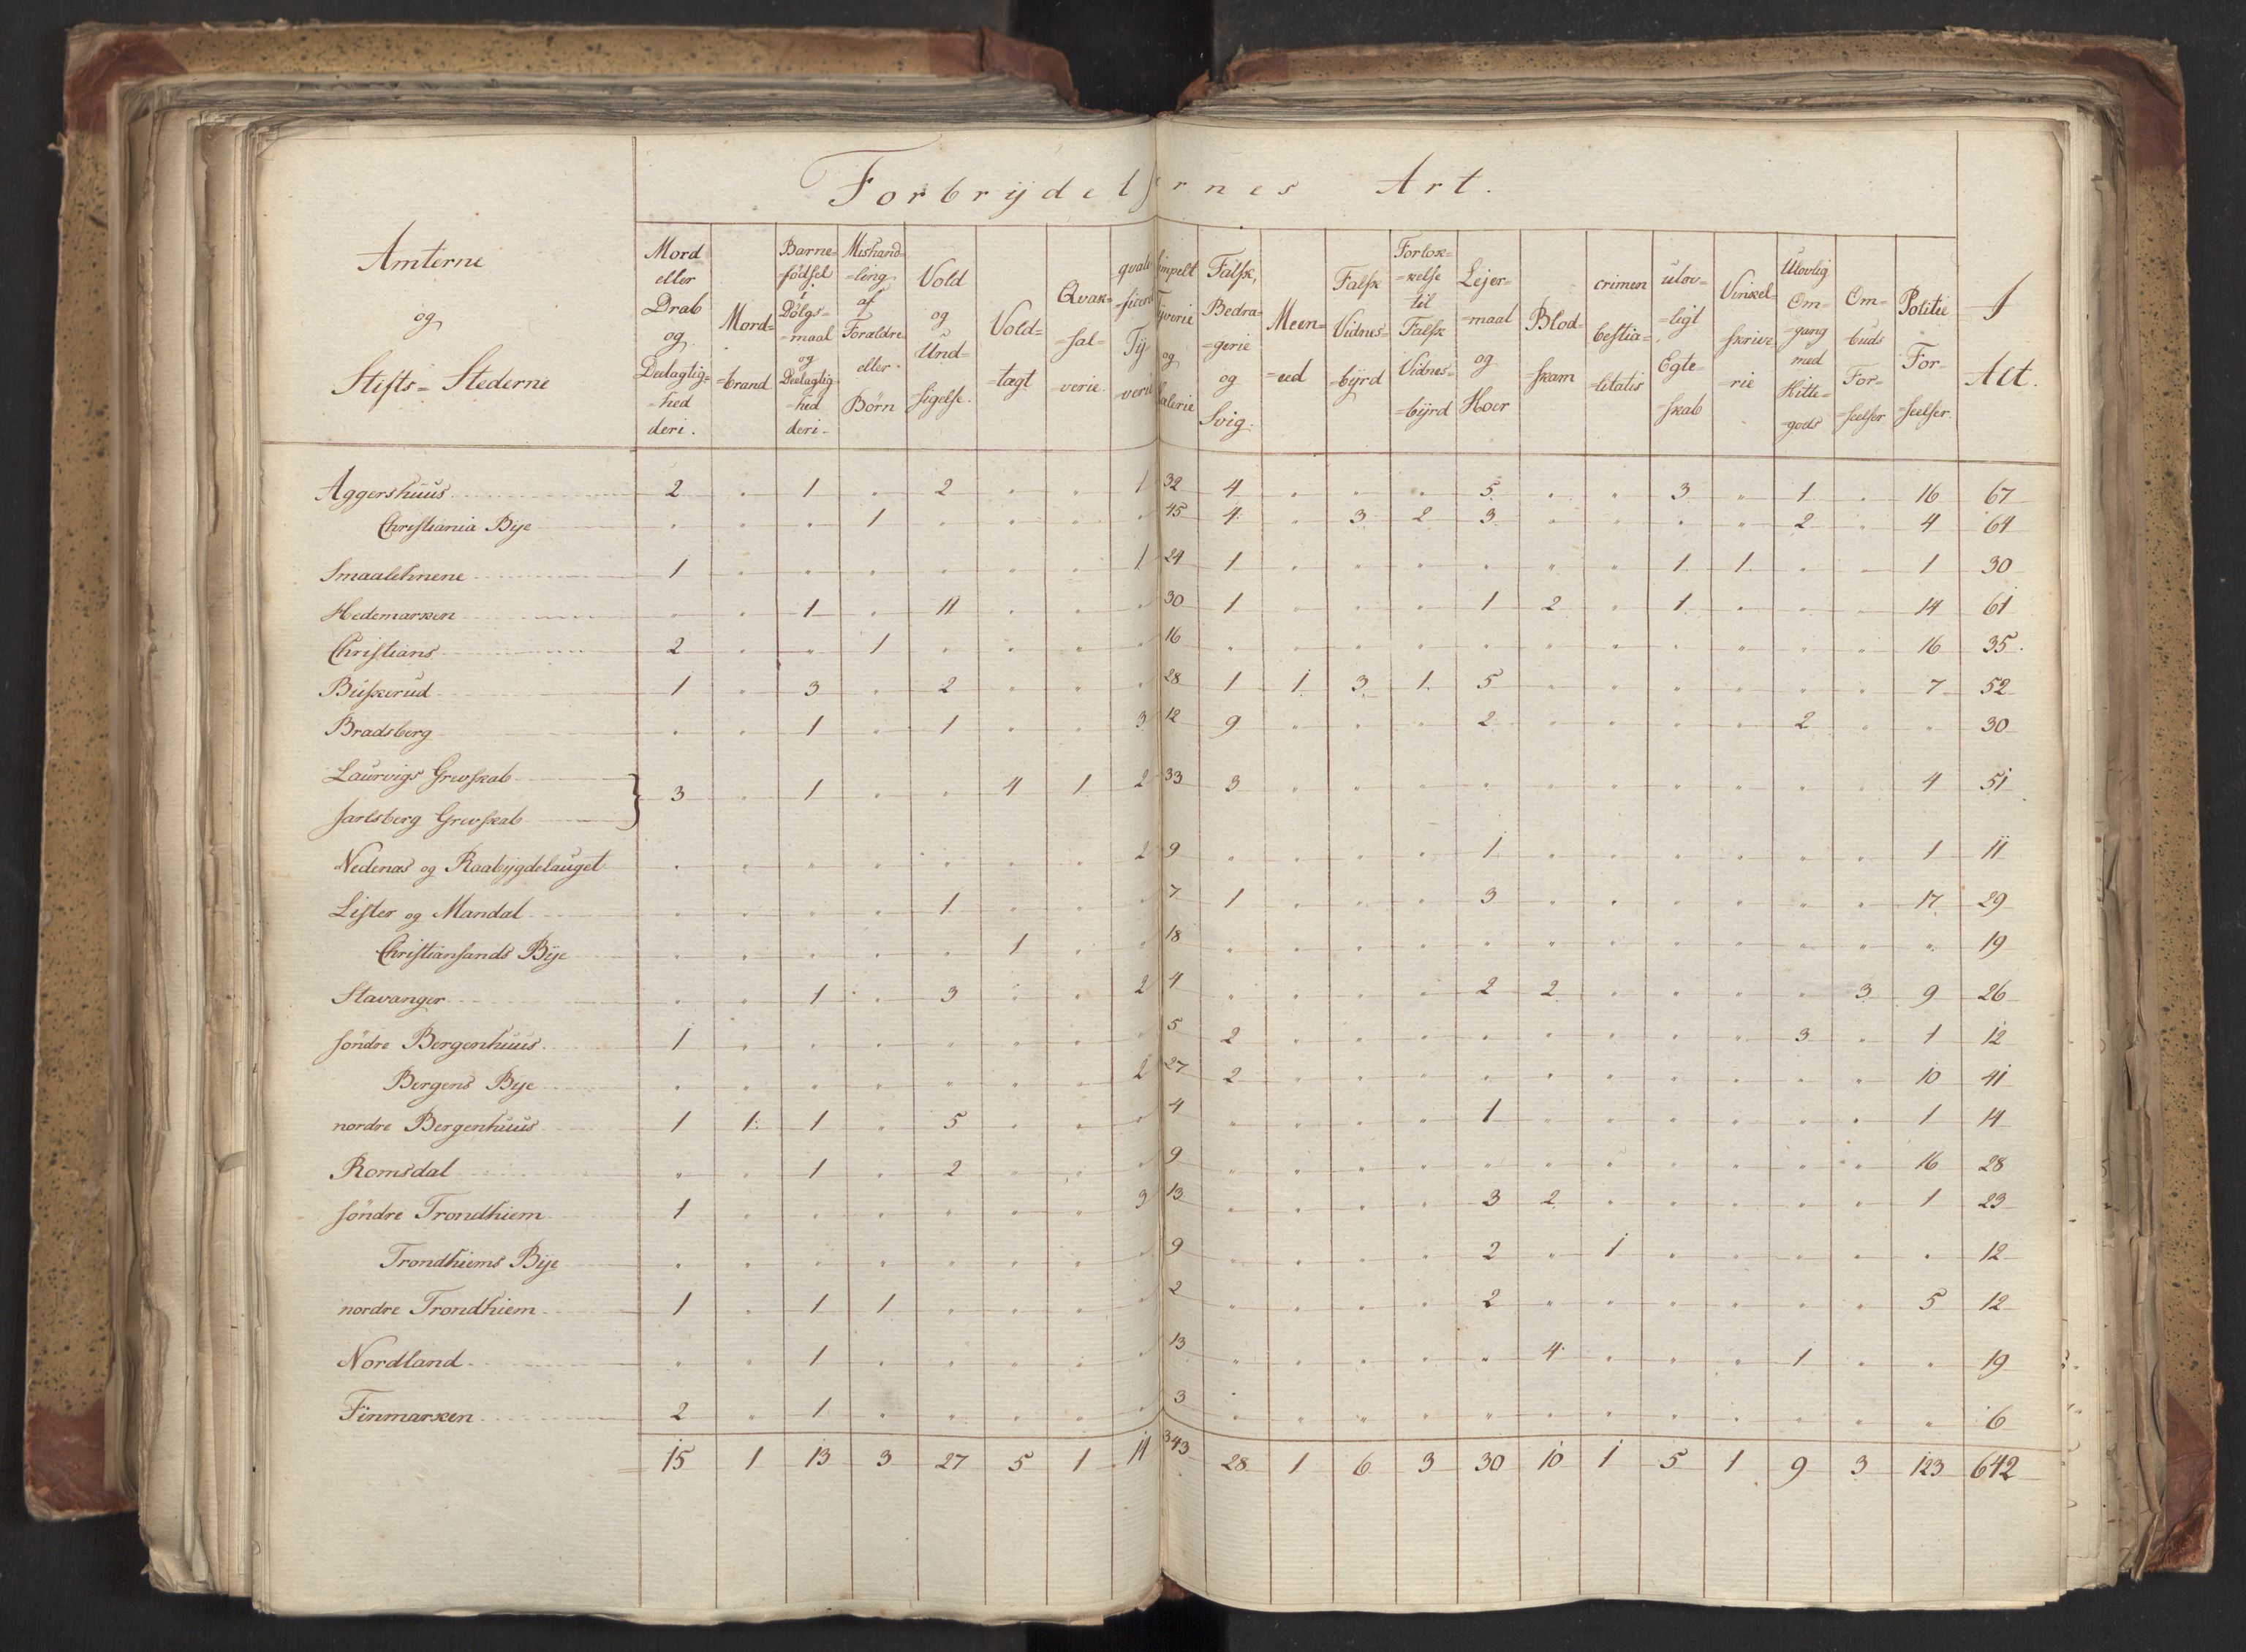 Forbrydelsernes Art.
Amterne og Stifts-Stederne | Mord eller Drab og Deelagtig=hed deri. | Mord=brand | Barne=fødsel i Dølgs=maal og Deelagtig=hed deri. | Mishand=ling af Forældre eller Børn | Vold og Und=sigelse. | Vold=tægt | Qvak=sal=verie. | qvali=ficeret Ty=verie | simpelt Tyverie og Hælerie | Falsk, Bedra=gerie og Svig. | Meen=eed | Falsk Vidnes=byrd | Forlok=kelse til Falsk Vidnes=byrd | Lejer=maal og Hoer | Blod=skam | crimen bestia=litatis | ulov=ligt Egte=skab | Vinkel=skrive=rie | Ulovlig Om=gang med Hitte=gods | Om=buds For=seelser | Politie For=seelser. | I Alt.
Aggershuus | 2 | " | 1 | " | 2 | " | " | 1 | 32 | 4 | " | " | " | 5 | " | " | 3 | " | 1 | " | 16 | 67
Christiania Bye | " | " | " | 1 | " | " | " | " | 45 | 4 | " | 3 | 2 | 3 | " | " | " | " | 2 | " | 4 | 64
Smaalehnene | 1 | " | " | " | " | " | " | 1 | 24 | 1 | " | " | " | " | " | " | 1 | 1 | " | " | 1 | 30
Hedemarken | " | " | 1 | " | 11 | " | " | " | 30 | 1 | " | " | " | 1 | 2 | " | 1 | " | " | " | 14 | 61
Christians | 2 | " | " | 1 | " | " | " | " | 16 | " | " | " | " | " | " | " | " | " | " | " | 16 | 35.
Buskerud | 1 | " | 3 | " | 2 | " | " | " | 28 | 1 | 1 | 3 | 1 | 5 | " | " | " | " | " | " | 7 | 52
Bradsberg | " | " | 1 | " | 1 | " | " | 3 | 12 | 9 | " | " | " | 2 | " | " | " | " | 2 | " | " | 30
Laurvigs Grevskab
Jarlsberg Grevskab } | 3 | " | 1 | " | " | 4 | 1 | 2 | 33 | 3 | " | " | " | " | " | " | " | " | " | " | 4 | 51
Nedenæs og Raabygdelauget | " | " | " | " | " | " | " | 2 | 9 | " | " | " | " | 1 | " | " | " | " | " | " | 1 | 11
Lister og Mandal | " | " | " | " | 1 | " | " | " | 7 | 1 | " | " | " | 3 | " | " | " | " | " | " | 17 | 29
Christiansands Bye | " | " | " | " | " | 1 | " | " | 18 | " | " | " | " | " | " | " | " | " | " | " | " | 19
Stavanger | " | " | 1 | " | 3 | " | " | 2 | 4 | " | " | " | " | 2 | 2 | " | " | " | " | 3 | 9 | 26
söndre Bergenhuus | 1 | " | " | " | " | " | " | " | 5 | 2 | " | " | " | " | " | " | " | " | 3 | " | 1 | 12
Bergens Bye | " | " | " | " | " | " | " | 2 | 27 | 2 | " | " | " | " | " | " | " | " | " | " | 10 | 41
nordre Bergenhuus | 1 | 1 | 1 | " | 5 | " | " | " | 4 | " | " | " | " | 1 | " | " | " | " | " | " | 1 | 14
Romsdal | " | " | 1 | " | 2 | " | " | " | 9 | " | " | " | " | " | " | " | " | " | " | " | 16 | 28
söndre Trondhiem | 1 | " | " | " | " | " | " | 3 | 13 | " | " | " | " | 3 | 2 | " | " | " | " | " | 1 | 23
Trondhiems Bye | " | " | " | " | " | " | " | " | 9 | " | " | " | " | 2 | " | 1 | " | " | " | " | " | 12
nordre Trondhiem | 1 | " | 1 | 1 | " | " | " | " | 2 | " | " | " | " | 2 | " | " | " | " | " | " | 5 | 12
Nordland | " | " | 1 | " | " | " | " | " | 13 | " | " | " | " | " | 4 | " | " | " | 1 | " | " | 19
Finmarken | 2 | " | 1 | " | " | " | " | " | 3 | " | " | " | " | " | " | " | " | " | " | " | " | 6
15 | 1 | 13 | 3 | 27 | 5 | 1 | 14 | 343 | 28 | 1 | 6 | 3 | 30 | 10 | 1 | 5 | 1 | 9 | 3 | 123 | 642